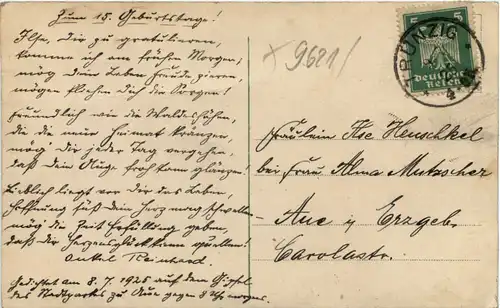 Zum 15. Geburtstage!
Ilse, Dir zu gratulieren,
komme ich am frühen Morgen;
mög Dein Leben Freude zieren,
mögen fliehen Dich die Sorgen!
Freundlich wie die Waldeshöhen,
die die meine Heimat kränzen,
mög' dir jeder Tag vergehen,
daß Dein Auge froh kann glänzen!
Lieblich liegt vor Dir das Leben,
Hoffnung süß Dein Herz mag schwellen
mög die Zeit Erfüllung geben,
daß der Herzensglück kann quellen!
Onkel Reinhard.
Gedichtet am 8.7.1925 auf dem Gipfel
des Stadtparks zu Aue gegen 8 Uhr morgens.
x 9621/
5 5
PÜNZIG
Deutsches
Reich
4
Fräulein Ilse Henschkel
bei Frau Alma Mutzscher
Aue i/ Erzgeb.
Carolastr.